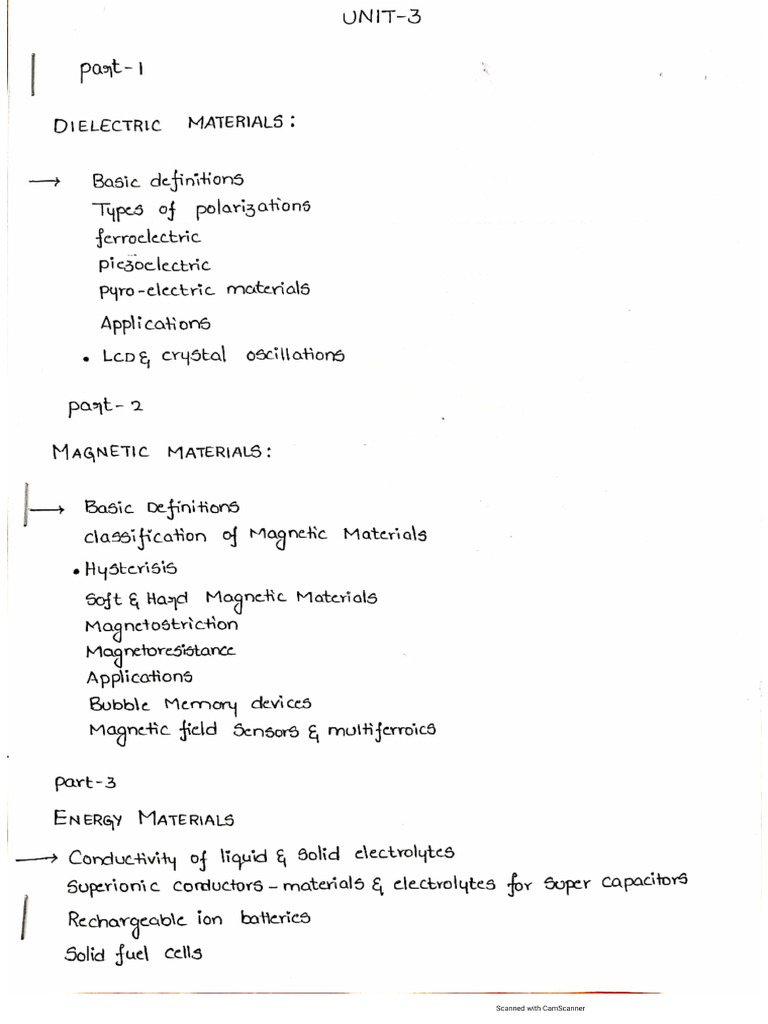 UNIT-3
part-1
DIELECTRIC MATERIALS:
→ Basic definitions
Types of polarizations
ferroelectric
piezoelectric
pyro-electric materials
Applications
• LCD & crystal oscillations
part-2
MAGNETIC MATERIALS:
→ Basic Definitions
classification of Magnetic Materials
• Hysterisis
Soft & Hard Magnetic Materials
Magnetostriction
Magnetoresistance
Applications
Bubble Memory devices
Magnetic field sensors & multiferroics
part-3
ENERGY MATERIALS
→ Conductivity of liquid & solid electrolytes
Superionic conductors - materials & electrolytes for super capacitors
Rechargeable ion batteries
Solid fuel cells
Scanned with CamScanner